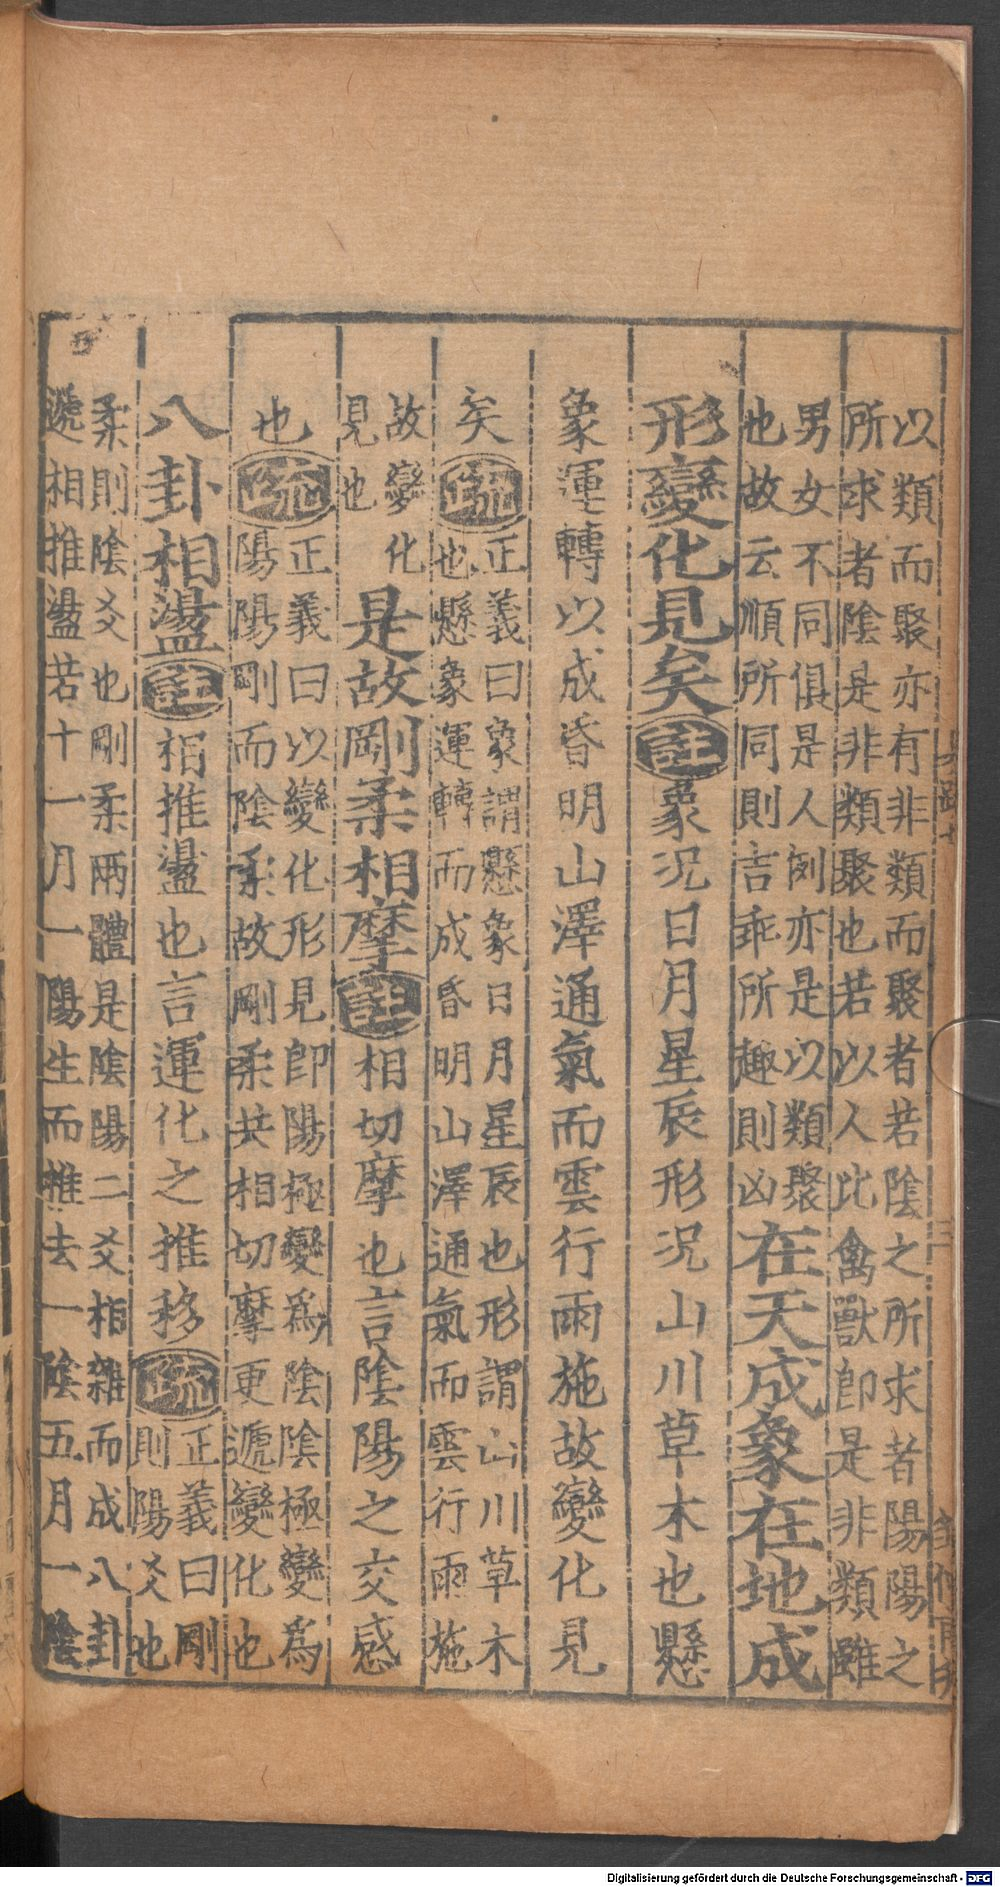 以類而聚亦有非類而聚者若陰之所求者陽陽之
所求者陰是非類聚也若以人比禽獸即是非類雖
男女不同俱是人例亦是以類聚
也故云順所同則吉乖所趣則凶
在天成象在地成
形變化見矣註象况日月星辰形况山川草木也懸
象運轉以成昏明山澤通氣而雲行雨施故變化見
矣疏
正義曰象謂懸象日月星辰也形謂山川草木
也懸象運轉而成昏明山澤通氣而雲行雨施
故變化
見也
是故剛柔相摩註相切摩也言陰陽之交感
也疏
正義曰以變化形見即陽極變爲陰陰極變爲
陽陽剛而陰柔故剛柔共相切摩更遞變化也
八卦相盪註相推盪也言運化之推移疏
正義曰剛
則陽爻也
柔則陰爻也剛柔兩體是陰陽二爻相雜而成八卦
遞相推盪若十一月一陽生而推去一陰五月一陰
三
Digitalisierung gefördert durch die Deutsche Forschungsgemeinschaft - DFG